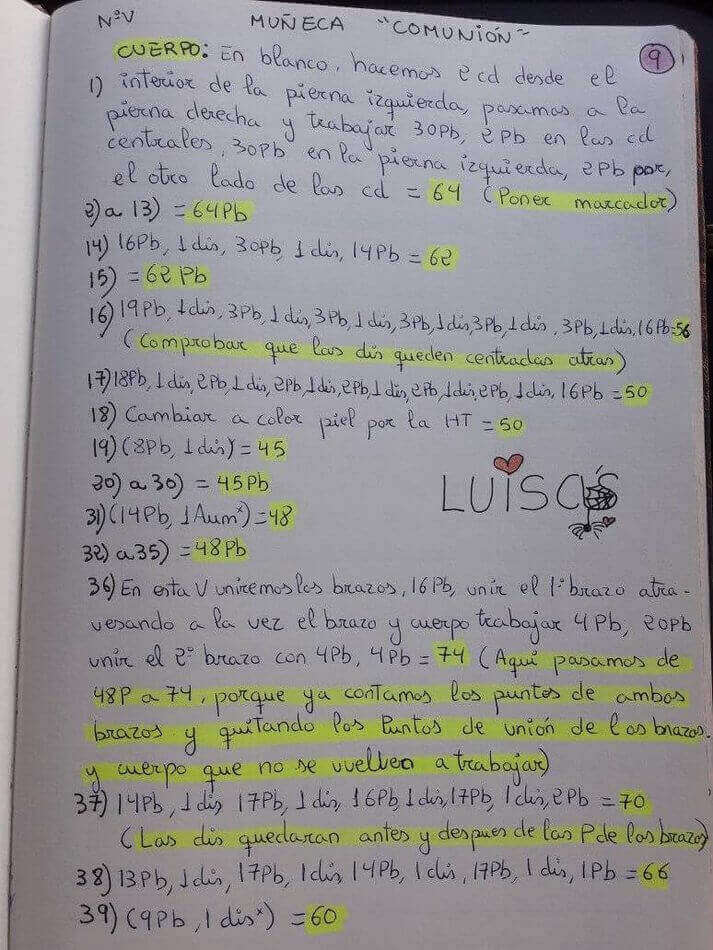 NºV MUÑECA "COMUNIÓN"
9
CUERPO: En blanco, hacemos 2 cd desde el
1) interior de la pierna izquierda, pasamos a la
pierna derecha y trabajar 30Pb, 2Pb en las cd
centrales, 30Pb en la pierna izquierda, 2Pb por,
el otro lado de las cd = 64 (Poner marcador)
2) a 13) = 64Pb
14) 16Pb, 1 dis, 30Pb, 1 dis, 14Pb = 62
15) = 62 Pb
16) 19Pb, 1dis, 3Pb, 1 dis, 3Pb, 1 dis, 3Pb, 1dis, 3Pb, 1 dis, 3Pb, 1dis, 16Pb=56
(Comprobar que las dis queden centradas atras)
17) 18Pb, 1dis, 2Pb, 1dis, 2Pb, 1dis, 2Pb, 1dis, 2Pb, 1dis, 2Pb, 1dis, 16Pb = 50
18) Cambiar a color piel por la HT = 50
19) (8Pb, 1dis) = 45
20) a 30) = 45Pb
31) (14Pb, 1Aum*) = 48
LUISCAS
32) a 35) = 48Pb
36) En esta V uniremos los brazos, 16Pb, unir el 1º brazo atra-
vesando a la vez el brazo y cuerpo trabajar 4Pb, 20Pb
unir el 2º brazo con 4Pb, 4Pb = 74 (Aqui pasamos de
48P a 74, porque ya contamos los puntos de ambos
brazos y quitando los Puntos de unión de los brazos.
y cuerpo que no se vuelven a trabajar)
37) 14Pb, 1dis, 17Pb, 1dis, 16Pb, 1dis, 17Pb, 1dis, 2Pb = 70
(Las dis quedaran antes y despues de las P de los brazos)
38) 13Pb, 1dis, 17Pb, 1dis, 14Pb, 1dis, 17Pb, 1 dis, 1Pb = 66
39) (9Pb, 1 dis*) = 60